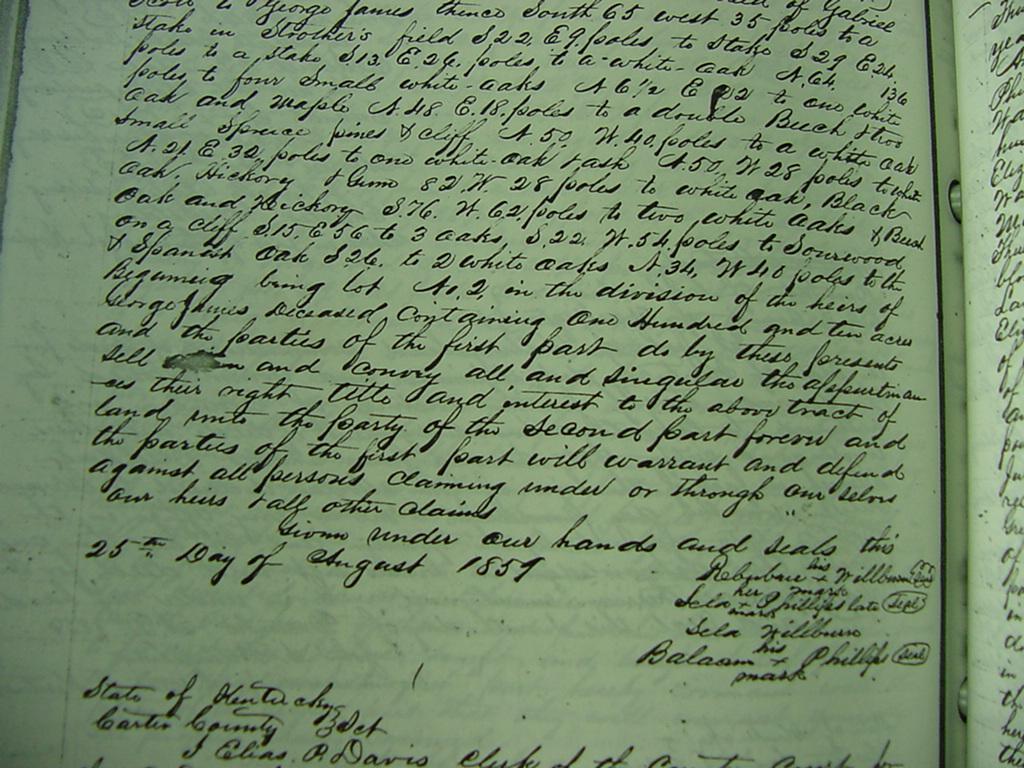 to George James thence South 65 west 35 poles to a
stake in Strother's field S 22, E 9, poles, to Stake S 29 E 24,
poles to a Stake S 13, E. 26, poles, to a white-oak N. 64, 136
poles, to four Small white-oaks N 6 1/2 E 92 to one white
oak and maple N. 48. E. 18. poles to a double Beech & two
Small Spruce pines & cliff, N. 50, W. 40, poles to a white oak
N. 21. E. 32, poles to one white-oak & ash N. 50, W 28 poles to white
oak, Hickory & Gum 82 W. 28 poles to white oak, Black
oak and Hickory S. 76. W. 62, poles to two white oaks & Beech
on a cliff S 15. E 56 to 3 oaks, S. 22. W. 54, poles to Sourwood
& Spanish oak S 26. to 2 white oaks N. 34, W 40 poles to the
Beginning being lot No, 2, in the division of the heirs of
George James, Deceased, Containing One Hundred and ten acres
and the parties of the first part do by these, presents
Sell and Convey all, and singular the appurtinan
ces their right title and interest to the above tract of
land, unto the party of the second part forever and
the parties of the first part will warrant and defend
against all persons claiming under or through our selves
our heirs & all other claims
Given under our hands and seals this
25th Day of August 1859
his
Willburn Seal
her mark
Sela Phillips late Seal
mark
Sela Willburn
his
Balaam + Phillips Seal
mark
State of Kentucky
Carter County } Sct
I Elias. P. Davis Clerk of the County Court for